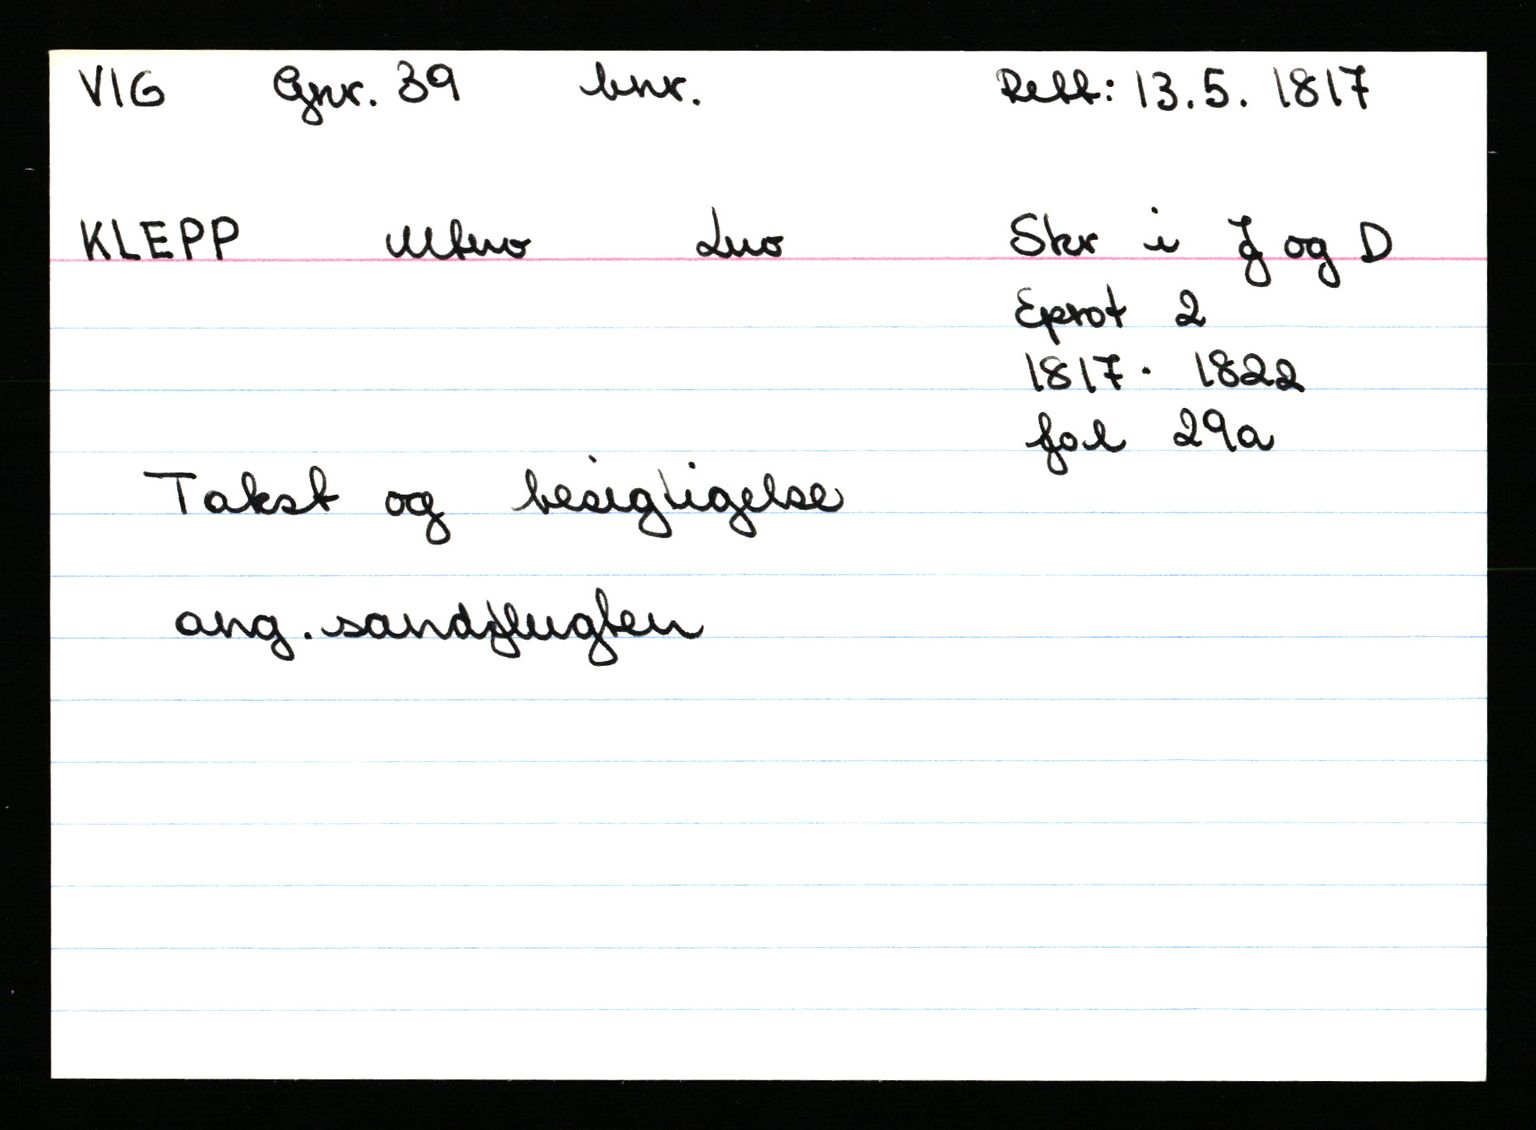 VIG Gnr. 39 bnr. Rett: 13.5. 1817
KLEPP Utno Lno Skr i J og D
Eprot 2
1817 - 1822
fol 29a
Takst og besigtigelse
ang. sandflugten